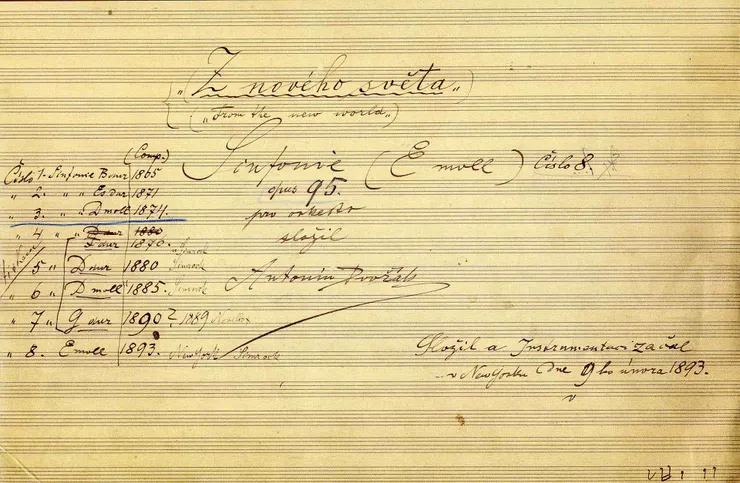 „Z nového světa„
(„From the new world„)
Sinfonie (E moll) Číslo 8.
opus 95.
pro orkestr
složil
Antonín Dvořák
(Comp.)
Číslo 1. Sinfonie B dur 1865
„ 2. „ Es dur 1871
„ 3. „ D moll 1874.
„ 4 „ D dur 1880
F dur 1870. Simrock
„ 5 „ D dur 1880 Simrock
„ 6 „ D moll 1885. Simrock
„ 7 „ G dur 1890? 1889 Novello
„ 8. E moll 1893. New York Simrock
Složil a Instrumentaci začal
v New Yorku dne 9ho února 1893.